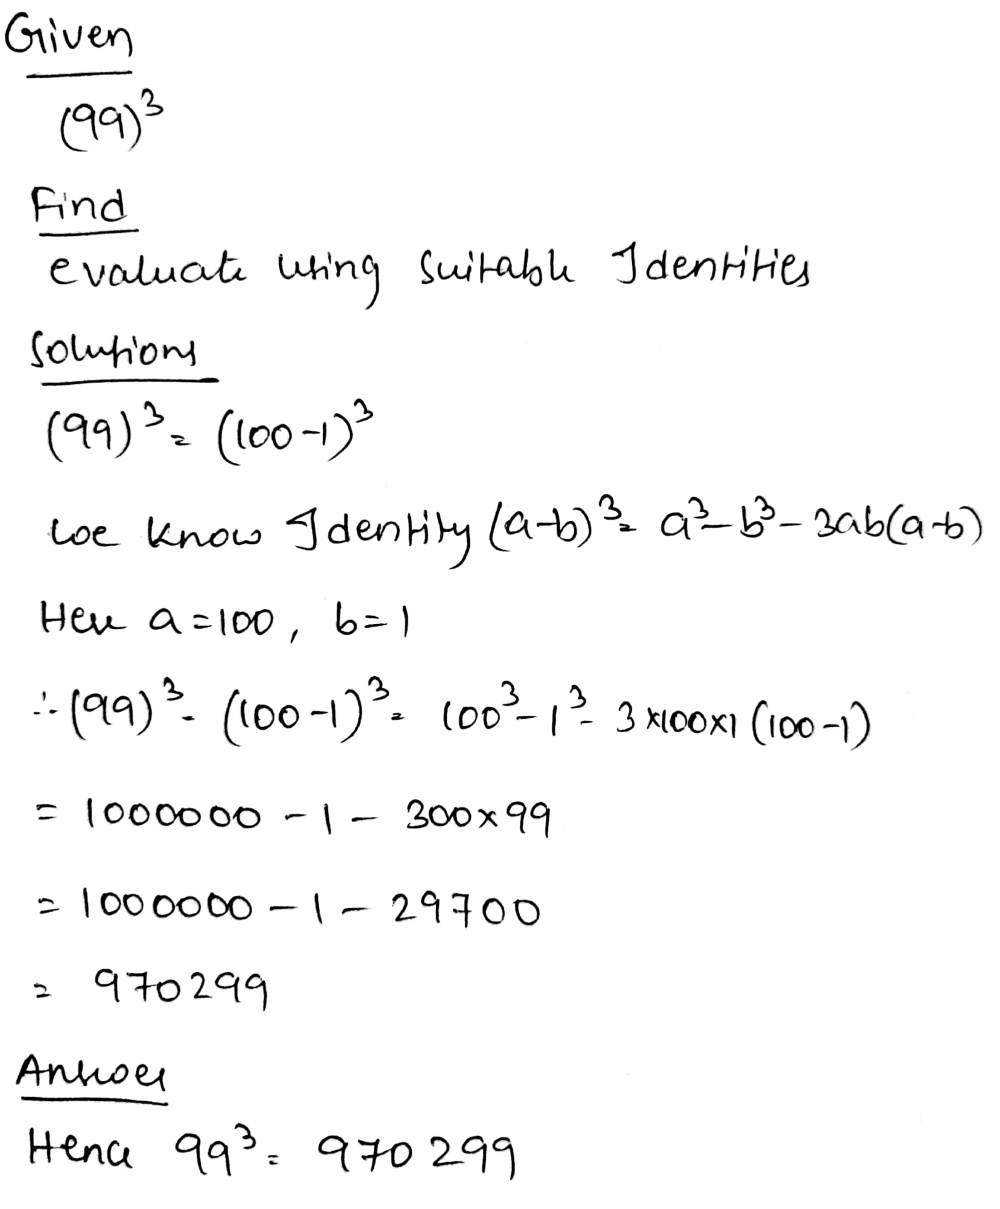 Given
(99)³
Find
evaluate using suitable Identities
Solutions
(99)³ = (100-1)³
We know Identity (a-b)³ = a³-b³-3ab(a-b)
Here a=100, b=1
∴ (99)³ = (100-1)³ = 100³-1³-3×100×1(100-1)
= 1000000 - 1 - 300×99
= 1000000 - 1 - 29700
= 970299
Answer
Hence 99³ = 970299